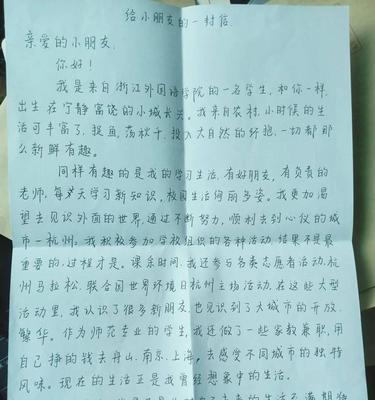 给小朋友的一封信.
亲爱的小朋友:
你好!
我是来自浙江外国语学院的一名学生,和你一样,
出生在宁静富饶的小城长兴。我来自农村,小时候的生
活可丰富了,捉鱼,荡秋千,投入大自然的怀抱,一切都那
么新鲜有趣。
同样有趣的是我的学习生活,有好朋友,有负责的
老师,每天学习新知识,校园生活绚丽多姿。我更加渴
望去见识外面的世界,通过不断努力,顺利去到心仪的城
市一杭州。我积极参加学校组织的各种活动,结果不是最
重要的,过程才是。课余时间,我还参与各类志愿者活动,杭
州马拉松,联合国世界环境日杭州主场活动,在这些大型
活动里,我认识了很多新朋友,也见识到了大城市的开放、
繁华。作为师范专业的学生,我还做了一些家教兼职,用
自己挣的钱去舟山、南京、上海,去感受不同城市的独特
风味。现在的生活正是我曾经想象中的生活。